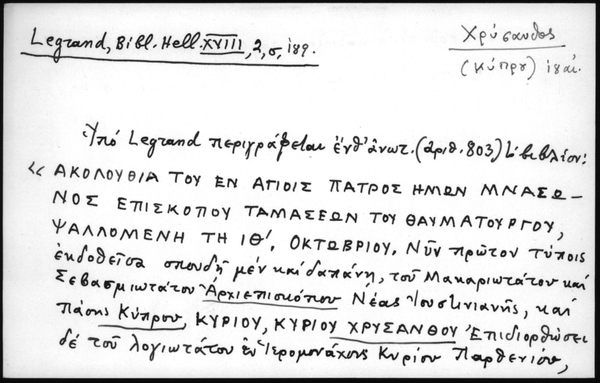 Legrand, Bibl. Hell. XVIII, 2, σ. 189.
Χρύσανθος
(Κύπρου)
Ὑπό Legrand περιγράφεται ἐνθ' ἀνωτ. (ἀριθ. 803) βιβλίον:
« ΑΚΟΛΟΥΘΙΑ ΤΟΥ ΕΝ ΑΓΙΟΙΣ ΠΑΤΡΟΣ ΗΜΩΝ ΜΝΑΣΩ–
ΝΟΣ ΕΠΙΣΚΟΠΟΥ ΤΑΜΑΣΕΩΝ ΤΟΥ ΘΑΥΜΑΤΟΥΡΓΟΥ,
ΨΑΛΛΟΜΕΝΗ ΤΗ ΙΘ', ΟΚΤΩΒΡΙΟΥ. Νῦν πρῶτον τύποις
ἐκδοθεῖσα σπουδῇ μέν καί δαπάνῃ, τοῦ Μακαριωτάτου καί
Σεβασμιωτάτου Ἀρχιεπισκόπου Νέας Ἰουστινιανῆς, καί
πάσης Κύπρου, ΚΥΡΙΟΥ, ΚΥΡΙΟΥ ΧΡΥΣΑΝΘΟΥ Ἐπιδιορθώσει
δέ τοῦ λογιωτάτου ἐν Ἱερομονάχοις Κυρίου Παρθενίου,